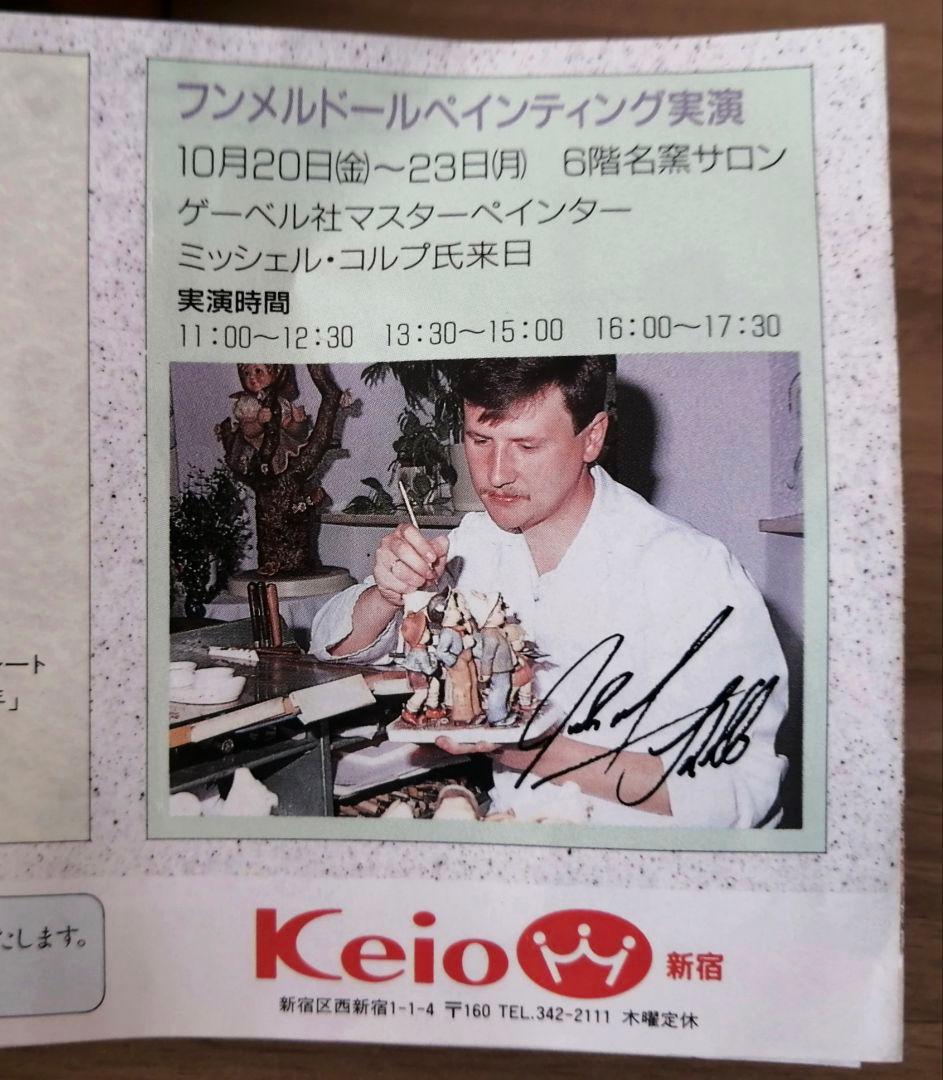 フンメルドールペインティング実演
10月20日㈮～23日㈪　6階名窯サロン
ゲーベル社マスターペインター
ミッシェル・コルプ氏来日
実演時間
11:00～12:30　13:30～15:00　16:00～17:30
レート
年」
たします。
Keio 新宿
新宿区西新宿1-1-4 〒160 TEL.342-2111 木曜定休